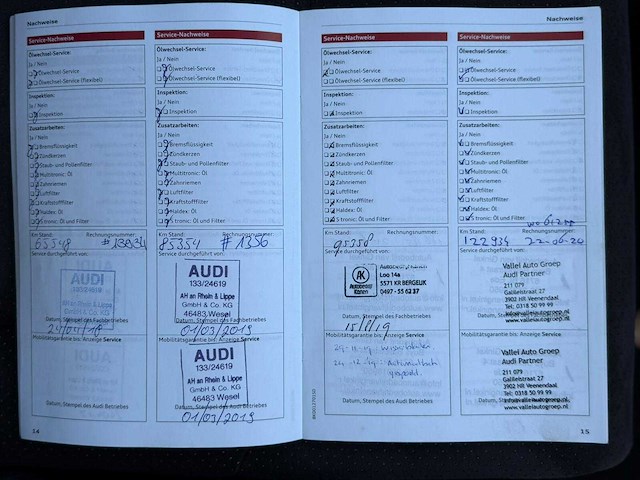 Nachweise
Service-Nachweise
Ölwechsel-Service:
Ja / Nein
Ölwechsel-Service
Ölwechsel-Service (flexibel)
Inspektion:
Ja / Nein
Inspektion
Zusatzarbeiten:
Ja / Nein
Bremsflüssigkeit
Zündkerzen
Staub- und Pollenfilter
Multitronic: Öl
Zahnriemen
Luftfilter
Kraftstofffilter
Haldex: Öl
S tronic: Öl und Filter
Km Stand: Rechnungsnummer:
65548
Service durchgeführt von:
AUDI
Datum, Stempel des Fachbetriebes
24/04/18
Mobilitätsgarantie bis: Anzeige Service
Datum, Stempel des Audi Betriebes
14
Service-Nachweise
Ölwechsel-Service:
Ja / Nein
Ölwechsel-Service
Ölwechsel-Service (flexibel)
Inspektion:
Ja / Nein
Inspektion
Zusatzarbeiten:
Ja / Nein
Bremsflüssigkeit
Zündkerzen
Staub- und Pollenfilter
Multitronic: Öl
Zahnriemen
Luftfilter
Kraftstofffilter
Haldex: Öl
S tronic: Öl und Filter
Km Stand: Rechnungsnummer:
85354 # 1356
Service durchgeführt von:
AUDI
133/24619
AH an Rhein & Lippe
GmbH & Co. KG
46483 Wesel
Datum, Stempel des Fachbetriebes
01/03/2019
Mobilitätsgarantie bis: Anzeige Service
AUDI
133/24619
AH an Rhein & Lippe
GmbH & Co. KG
46483 Wesel
Datum, Stempel des Audi Betriebes
01/03/2019
Nachweise
Service-Nachweise
Ölwechsel-Service:
Ja / Nein
Ölwechsel-Service
Ölwechsel-Service (flexibel)
Inspektion:
Ja / Nein
Inspektion
Zusatzarbeiten:
Ja / Nein
Bremsflüssigkeit
Zündkerzen
Staub- und Pollenfilter
Multitronic: Öl
Zahnriemen
Luftfilter
Kraftstofffilter
Haldex: Öl
S tronic: Öl und Filter
Km Stand: Rechnungsnummer:
95358
Service durchgeführt von:
AK
Loo 14a
5571 KR BERGEIJK
0497 - 55 62 37
Datum, Stempel des Fachbetriebes
15/11/19
Mobilitätsgarantie bis: Anzeige Service
Datum, Stempel des Audi Betriebes
Service-Nachweise
Ölwechsel-Service:
Ja / Nein
Ölwechsel-Service
Ölwechsel-Service (flexibel)
Inspektion:
Ja / Nein
Inspektion
Zusatzarbeiten:
Ja / Nein
Bremsflüssigkeit
Zündkerzen
Staub- und Pollenfilter
Multitronic: Öl
Zahnriemen
Luftfilter
Kraftstofffilter
Haldex: Öl
S tronic: Öl und Filter
Km Stand: Rechnungsnummer:
122934 22-06-20
Service durchgeführt von:
Vallei Auto Groep
Audi Partner
211 079
Galileistraat 27
3902 HR Veenendaal
Tel: 0318 50 99 99
www.valleiautogroep.nl
Mobilitätsgarantie bis: Anzeige Service
Vallei Auto Groep
Audi Partner
211 079
Galileistraat 27
3902 HR Veenendaal
Tel: 0318 50 99 99
www.valleiautogroep.nl
15